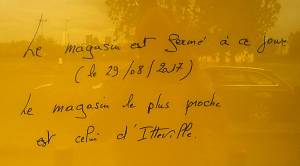 Le magasin est fermé à ce jour
(le 29/08/2017)
Le magasin le plus proche
est celui d'Itteville.